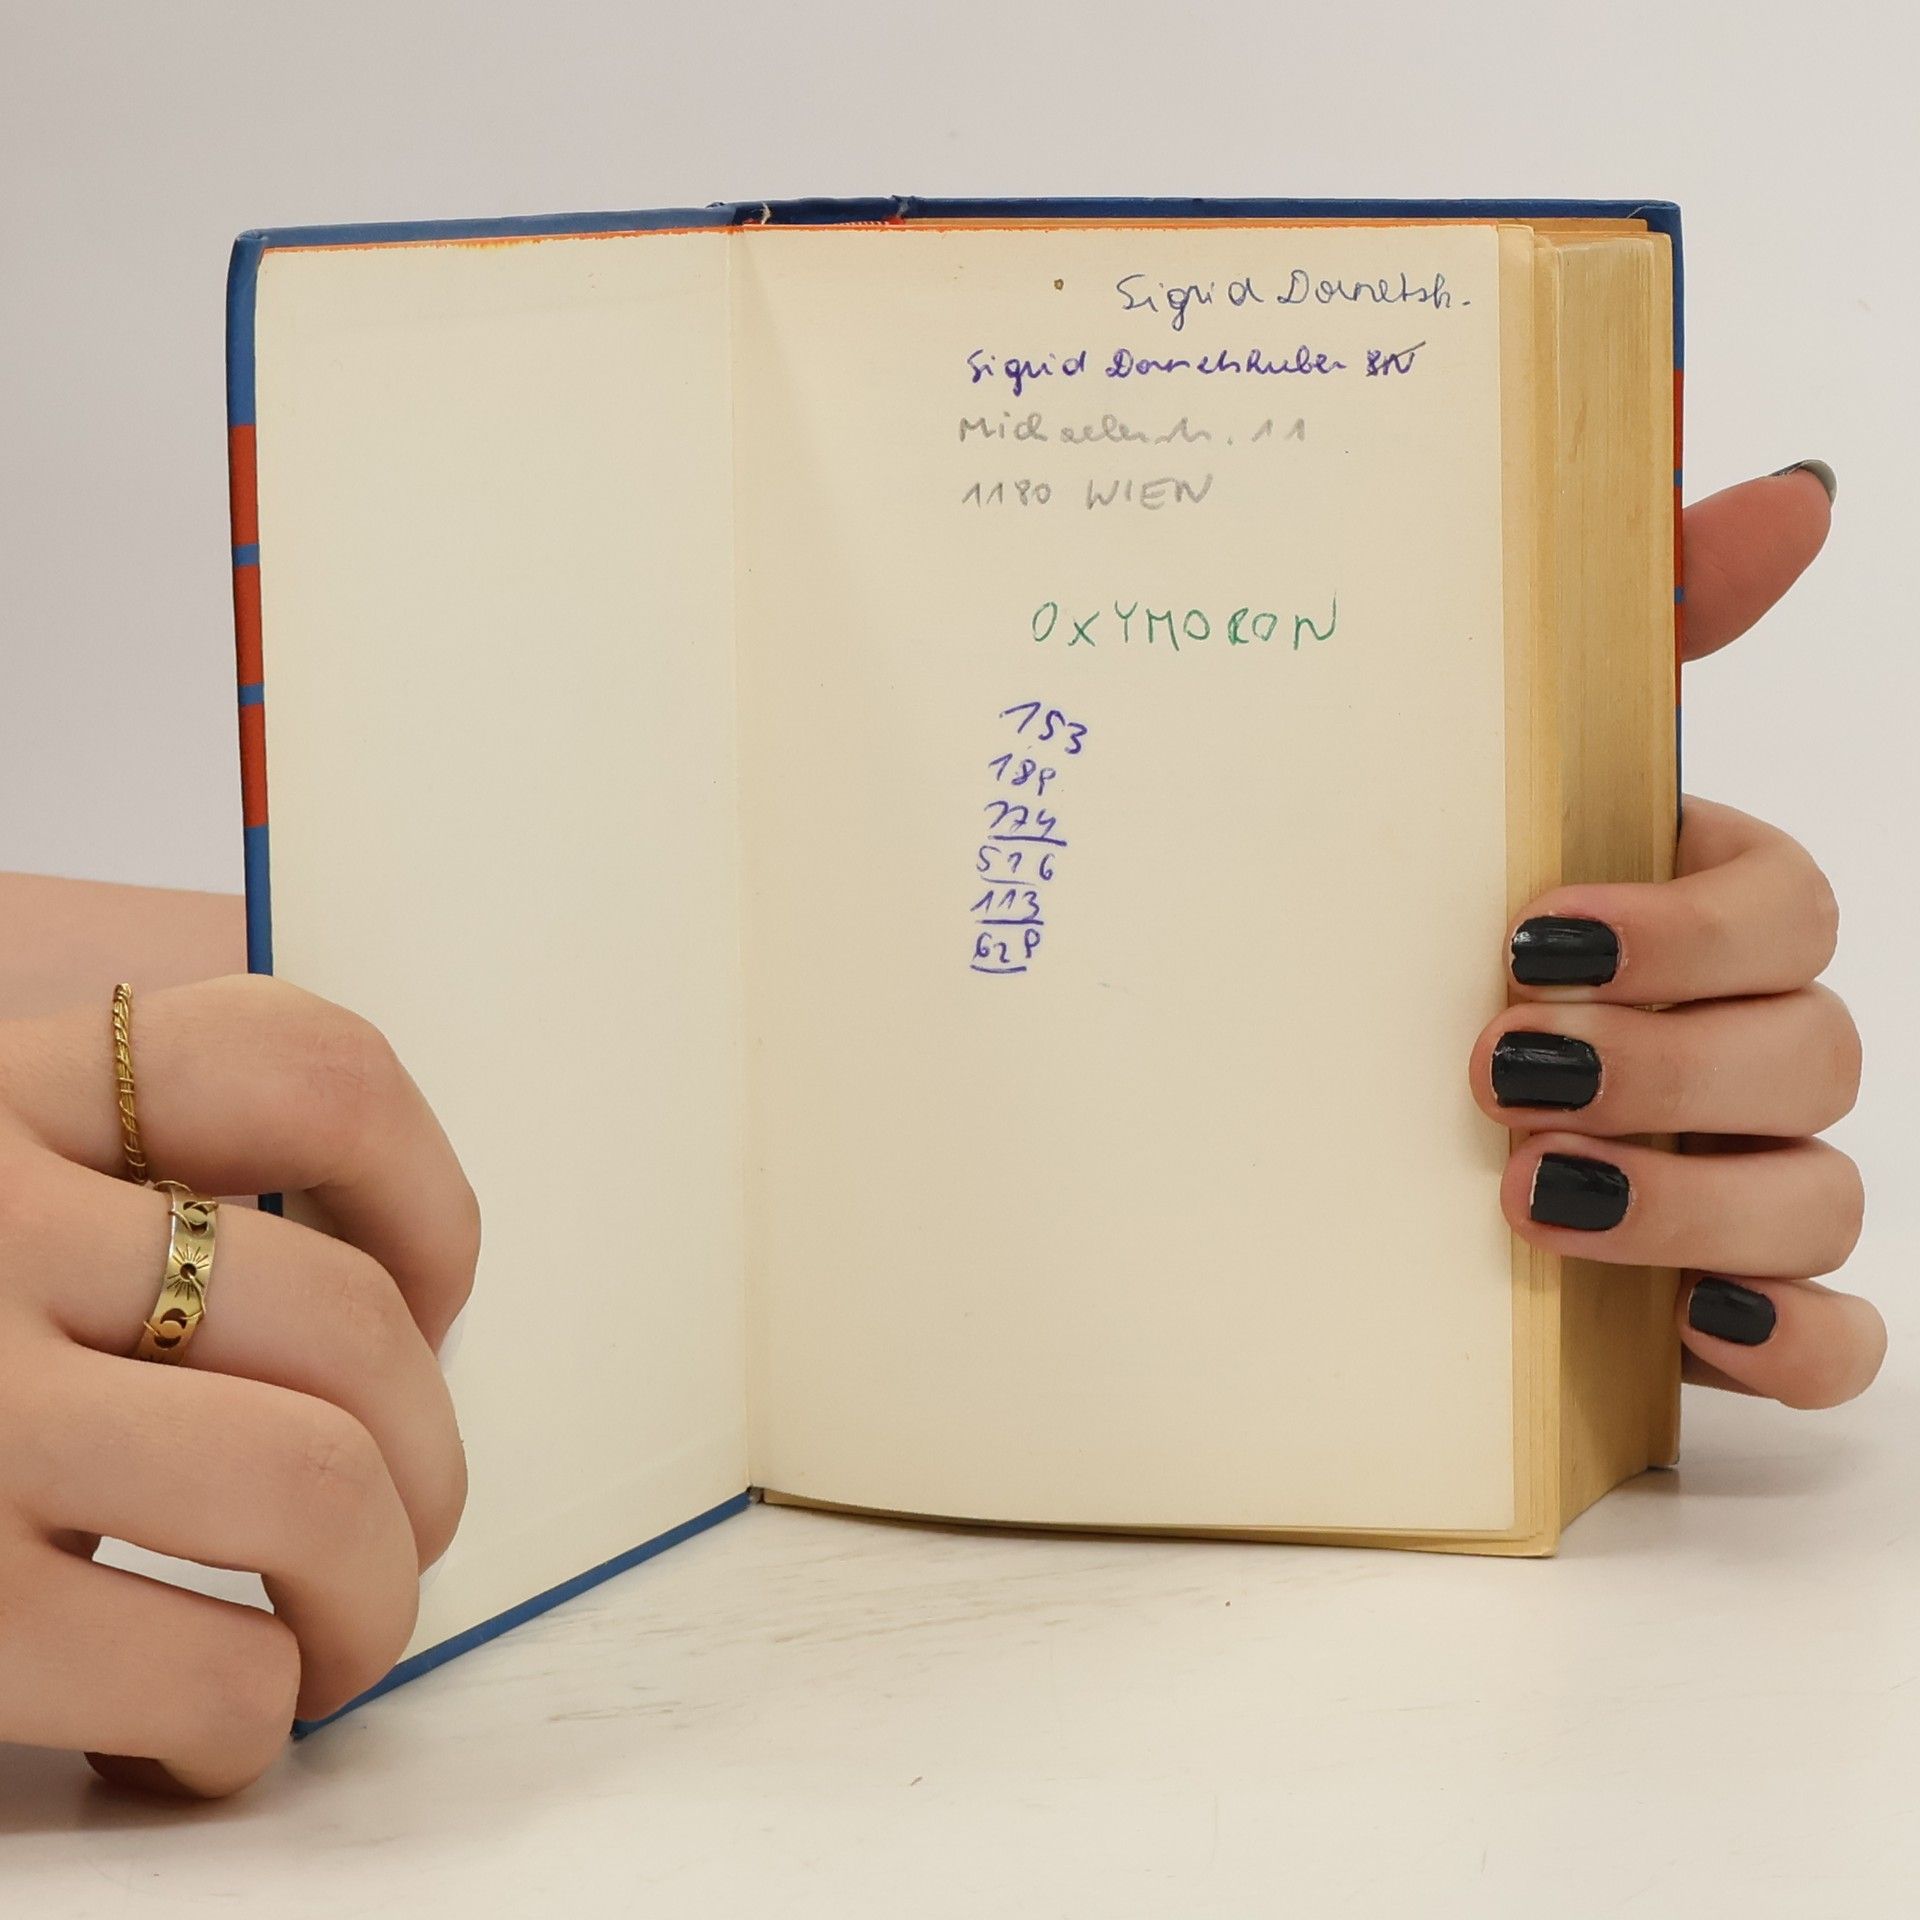 Sigrid Dornetsh.
Sigrid Dornetshuber 8N
Michaelerstr. 11
1180 WIEN
OXYMORON
153
189
174
516
113
629